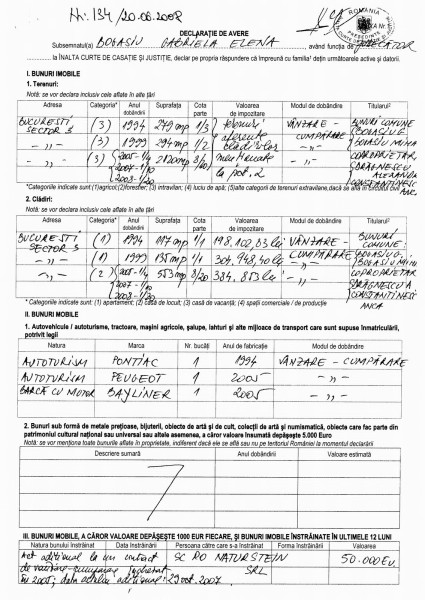 Nr. 134/20.06.2008
ROMANIA
DECLARAȚIE DE AVERE
Subsemnatul(a) BOGASIU GABRIELA ELENA, având funcția de JUDECĂTOR
la ÎNALTA CURTE DE CASAȚIE ȘI JUSTIȚIE, declar pe propria răspundere că împreună cu familia¹ dețin următoarele active și datorii.
I. BUNURI IMOBILE
1. Terenuri:
Notă: se vor declara inclusiv cele aflate în alte țări
Adresa Categoria* Anul dobândirii Suprafața Cota parte Valoarea de impozitare Modul de dobândire Titularul²
BUCUREȘTI SECTOR 3 (3) 1994 279 mp 1/3 terenuri aferente clădirilor menționate la pct. 2 VÂNZARE - CUMPĂRARE BUNURI COMUNE BOGASIU G.
-„- (3) 1999 294 mp 1/2 BOGASIU MIHA
-„- (3) 2005-1/4 2007-1/10 2008-1/20 2120 mp COPROPRIETAR DRĂGNESCU ALEXANDRA CONSTANTINESC ANCA
*Categoriile indicate sunt:(1)agricol;(2)forestier; (3) intravilan; (4) luciu de apă; (5)alte categorii de terenuri extravilane,dacă se află în circuitul civil
2. Clădiri:
Notă: se vor declara inclusiv cele aflate în alte țări
Adresa Categoria* Anul dobândirii Suprafața Cota parte Valoarea de impozitare Modul de dobândire Titularul²
BUCUREȘTI SECTOR 3 (1) 1994 117 mp 1/1 198.102,83 lei VÂNZARE - CUMPĂRARE BUNURI COMUNE:
-„- (1) 1999 135 mp 1/1 304.948,40 lei BOGASIU G. BOGASIU MIHA
-„- (2) 2005-1/4 2007-1/10 2008-1/20 553 mp 8/20 384.853 lei -„- COPROPRIETAR DRĂGNESCU A CONSTANTINESC ANCA
* Categoriile indicate sunt: (1) apartament; (2) casă de locuit; (3) casă de vacanță; (4) spații comerciale / de producție
II. BUNURI MOBILE
1. Autovehicule / autoturisme, tractoare, mașini agricole, șalupe, iahturi și alte mijloace de transport care sunt supuse înmatriculării,
potrivit legii
Natura Marca Nr. bucăți Anul de fabricație Modul de dobândire
AUTOTURISM PONTIAC 1 1994 VÂNZARE - CUMPĂRARE
AUTOTURISM PEUGEOT 1 2005 -„-
BARCĂ CU MOTOR BAYLINER 1 2005 -„-
2. Bunuri sub formă de metale prețioase, bijuterii, obiecte de artă și de cult, colecții de artă și numismatică, obiecte care fac parte din
patrimoniul cultural național sau universal sau altele asemenea, a căror valoare însumată depășește 5.000 Euro
Notă: se vor menționa toate bunurile aflate în proprietate, indiferent dacă ele se află sau nu pe teritoriul României la momentul declarării
Descriere sumară Anul dobândirii Valoare estimată
III. BUNURI MOBILE, A CĂROR VALOARE DEPĂȘEȘTE 1000 EUR FIECARE, ȘI BUNURI IMOBILE ÎNSTRĂINATE ÎN ULTIMELE 12 LUNI
Natura bunului înstrăinat Data înstrăinării Persoana către care s-a înstrăinat Forma înstrăinării Valoarea
Act adițional la un contract SC RO NATURSTEIN 50.000 EUR
de vânzare-cumpărare încheiat SRL
în 2005; data actului adițional: 29 oct. 2007.